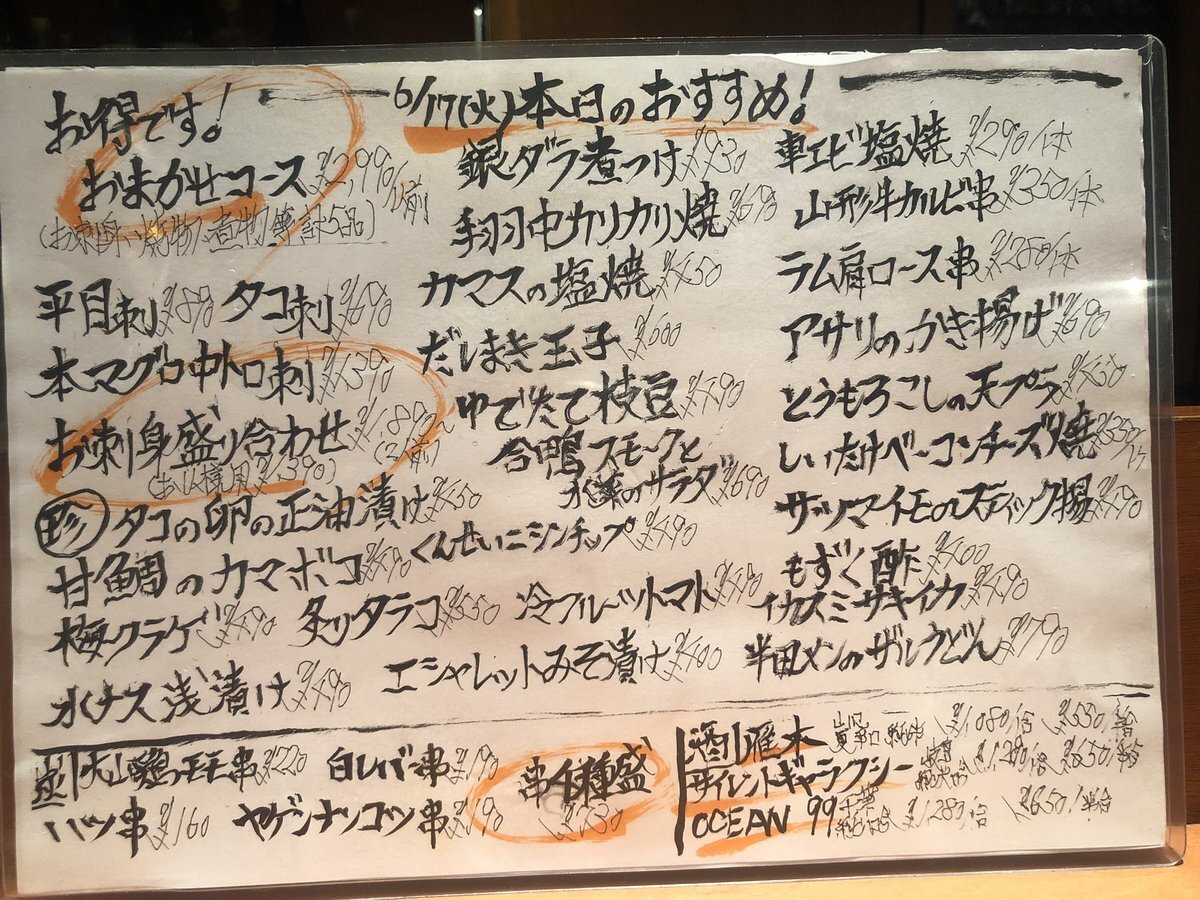 お得です!
おまかせコース ¥2,990/1人前
(お刺身、焼物、煮物等計5品)
平目刺 ¥890 タコ刺 ¥690
本マグロ中トロ刺 ¥1,390
お刺身盛り合わせ ¥1,890
(お1人様用¥1,390) (2人前)
珍 タコの卵の正油漬け ¥450
甘鯛のカマボコ ¥490
梅クラゲ ¥490 炙りタラコ ¥550
水ナス浅漬け ¥490
6/17(火)本日のおすすめ!
銀ダラ煮つけ ¥930
手羽中カリカリ焼 ¥690
カマスの塩焼 ¥450
だしまき玉子 ¥600
ゆでたて枝豆 ¥490
合鴨スモークと
水菜のサラダ ¥690
くんせいニシンチップ ¥490
冷フルーツトマト ¥490
エシャレットみそ漬け ¥400
車エビ塩焼 ¥290/1本
山形牛カルビ串 ¥350/1本
ラム肩ロース串 ¥280/1本
アサリのかき揚げ ¥690
とうもろこしの天プラ ¥450
しいたけベーコンチーズ焼 ¥350/1ケ
サツマイモのスティック揚 ¥490
もずく酢 ¥400
イカスミサキイカ ¥490
半田メンのザルうどん ¥790
炭 大山鶏モモ串 ¥220 白レバー串 ¥190
ハツ串 ¥160 ヤゲンナンコツ串 ¥190
串4種盛
¥730
酒 雁木 ¥1,080/1合 ¥550/半合
サイレントギャラクシー ¥1,280/合 ¥650/半合
OCEAN 99 千葉 ¥1,280/合 ¥650/半合